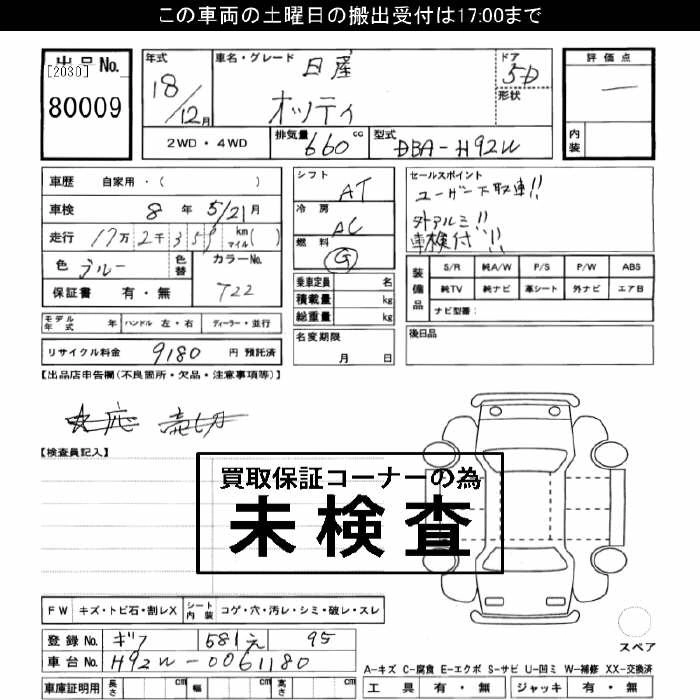 この車両の土曜日の搬出受付は17:00まで
出品No.
[2030]
80009
年式
18/12月
車名・グレード
日産
オッティ
ドア
5D
形状
評価点
一
内装
2WD・4WD
排気量 660 cc
型式 DBA-H92W
車歴 自家用・( )
車検 8年 5/21月
走行 17万2千3 5 km マイル( )
色 ブルー
色替
カラーNo.
722
保証書 有・無
モデル年式 年 ハンドル 左・右 ディーラー・並行
リサイクル料金 9180 円 預託済
シフト
AT
冷房
AC
燃料
G
乗車定員 名
積載量 kg
総重量 kg
名変期限
月 日
セールスポイント
ユーザー下取車!!
外アルミ!!
車検付!!
装備品
S/R 純A/W P/S P/W ABS
純TV 純ナビ 革シート 外ナビ エアB
ナビ型番:
後日品
【出品店申告欄(不良箇所・欠品・注意事項等)】
応 売切
【検査員記入】
買取保証コーナーの為
未検査
FW キズ・トビ石・割レX シート内装 コゲ・穴・汚レ・シミ・破レ・スレ
登録No. ギフ 581 え 95
車台No. H92W-0061180
車庫証明用 長さ cm 幅 cm 高さ cm
スペア
A-キズ C-腐食 E-エクボ S-サビ U-凹ミ W-補修 XX-交換済
工具 有・無 ジャッキ 有・無